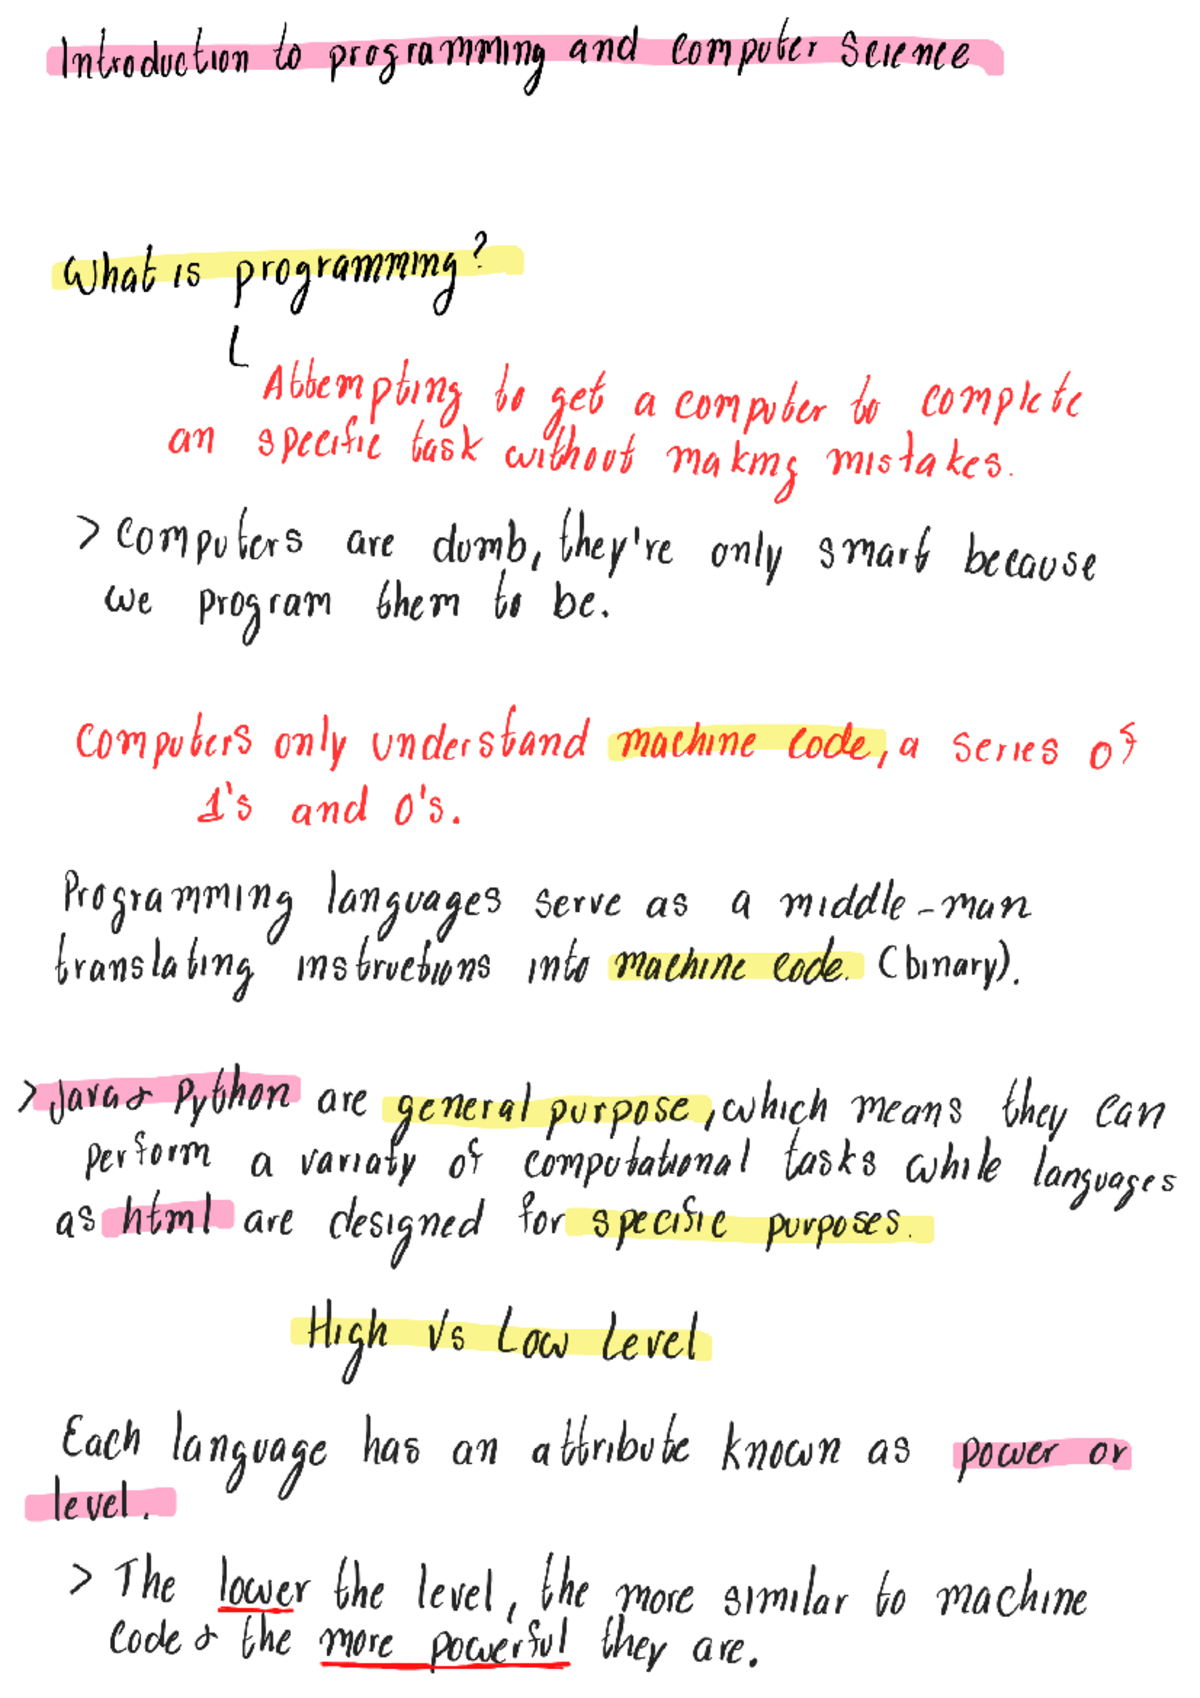 Introduction to programming and computer science
What is programming?
Attempting to get a computer to complete
an specific task without making mistakes.
> Computers are dumb, they're only smart because
we program them to be.
Computers only understand machine code, a series of
1's and 0's.
Programming languages serve as a middle-man
translating instructions into machine code. (binary).
> Java & Python are general purpose, which means they can
perform a variaty of computational tasks while languages
as html are designed for specific purposes.
High Vs Low Level
Each language has an attribute known as power or
level.
> The lower the level, the more similar to machine
code & the more powerful they are.